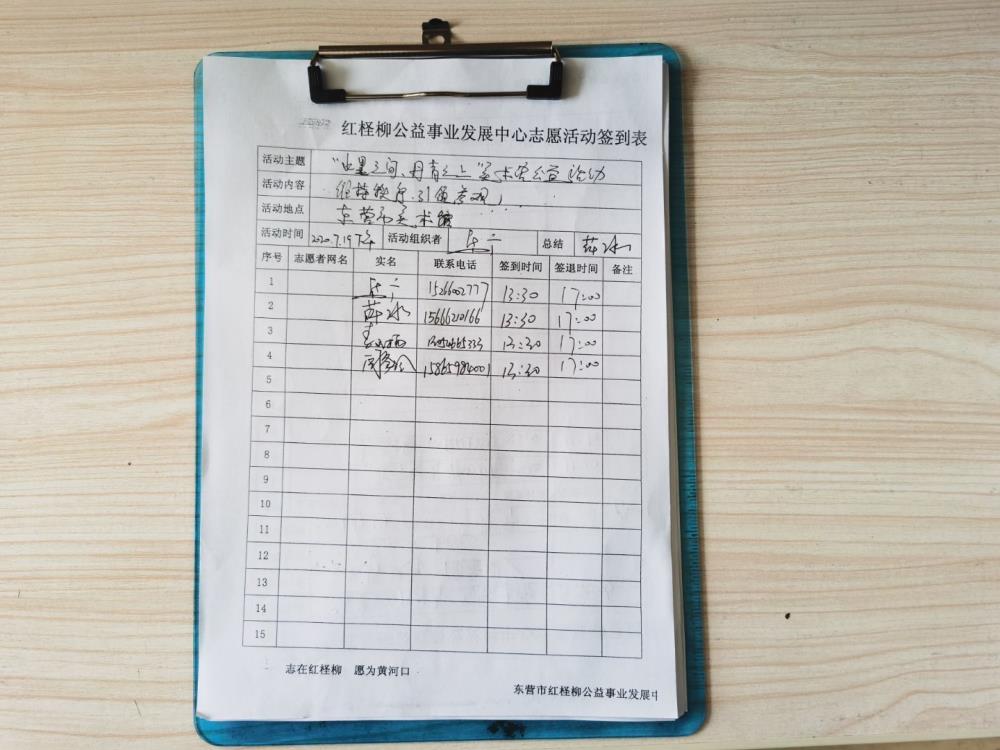 红柽柳公益事业发展中心志愿活动签到表
活动主题 "水墨之间、丹青之上"美术馆公益活动
活动内容 维持秩序、引领参观
活动地点 东营市美术馆
活动时间 2020.7.19下午 活动组织者 总结 薛冰
序号 志愿者网名 实名 联系电话 签到时间 签退时间 备注
1 1526602777 13:30 17:00
2 薛冰 15666210166 13:30 17:00
3 13:30 17:00
4 15865984001 13:30 17:00
5
6
7
8
9
10
11
12
13
14
15
志在红柽柳 愿为黄河口
东营市红柽柳公益事业发展中